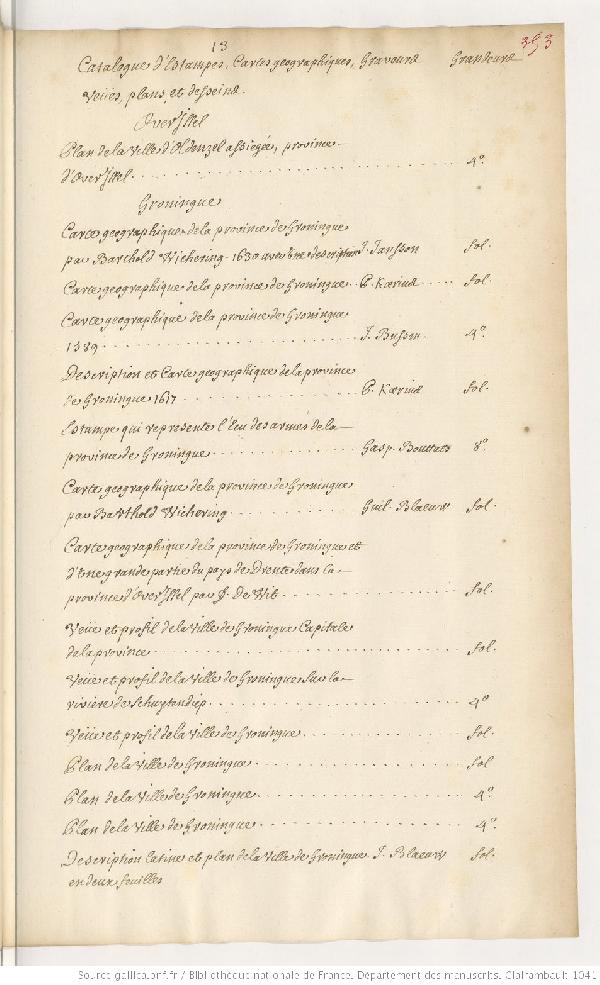 13
353
Catalogue d'Estampes, Cartes geographiques, Graveurs Grandeurs
Veües, plans, et desseins.
OverIssel
Plan de la Ville d'Oldenzel assiegée, province
d'OverIssel. 4º.
Groningue
Carte geographique de la province de Groningue
par Barthold Wichering 1630 avec une description J. Jansson fol.
Carte geographique de la province de Groningue P. Kærius fol.
Carte geographique de la province de Groningue
1589 J. Bussem. 4º.
Description et Carte geographique de la province
de Groningue 1617 P. Kærius fol.
Estampe qui represente l'Ecu des armes de la
province de Groningue Gasp. Bouttats 8º.
Carte geographique de la province de Groningue
par Barthold Wichering Guil. Blaeuw fol.
Carte geographique de la province de Groningue et
d'Une grande partie du pays de Drente dans la
province d'OverIssel par F. De Wit fol.
Veüe et profil de la Ville de Groningue Capitale
de la province fol.
Veüe et profil de la Ville de Groningue sur la
riviere de Schuytandiep 4º
Veüe et profil de la Ville de Groningue fol.
Plan de la Ville de Groningue fol
Plan de la Ville de Groningue 4º.
Plan de la Ville de Groningue 4º.
Description latine et plan de la Ville de Groningue J. Blaeuw fol.
en deux feuilles
Source gallica.bnf.fr / Bibliothèque nationale de France. Département des manuscrits. Clairambault 1041